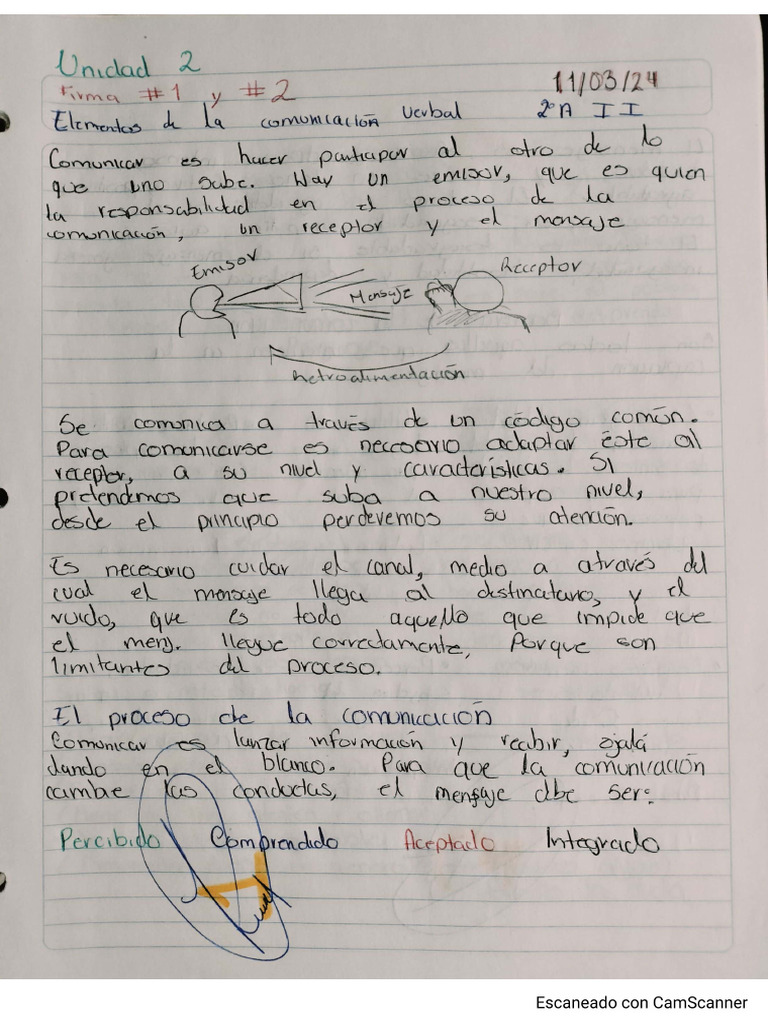 Unidad 2
Firma #1 y #2
11/03/24
Elementos de la comunicación verbal
2°A II
Comunicar es hacer participar al otro de lo
que uno sabe. Hay un emisor, que es quien
la responsabilidad en el proceso de la
comunicación, un receptor y el mensaje
Emisor
Receptor
Mensaje
Retroalimentación
Se comunica a través de un código común.
Para comunicarse es necesario adaptar éste al
receptor, a su nivel y características. Si
pretendemos que suba a nuestro nivel,
desde el principio perderemos su atención.
Es necesario cuidar el canal, medio a através del
cual el mensaje llega al destinatario, y el
ruido, que es todo aquello que impide que
el menj. llegue correctamente, Porque son
limitantes del proceso.
El proceso de la comunicación
Comunicar es lanzar información y recibir, ojalá
dando en el blanco. Para que la comunicación
cambie las conductas, el mensaje dbe ser:
Percibido Comprendido Aceptado Integrado
Escaneado con CamScanner